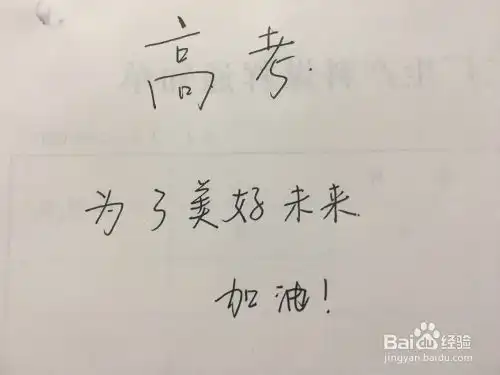 高考.
为了美好未来.
加油!
Baidu 经验
jingyan.baidu.com